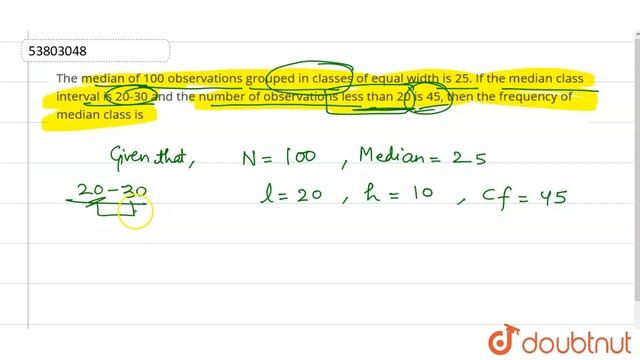 53803048
The median of 100 observations grouped in classes of equal width is 25. If the median class
interval is 20-30 and the number of observations less than 20 is 45, then the frequency of
median class is
Given that, N = 100 , Median = 25
20-30 l = 20 , h = 10 , Cf = 45
doubtnut